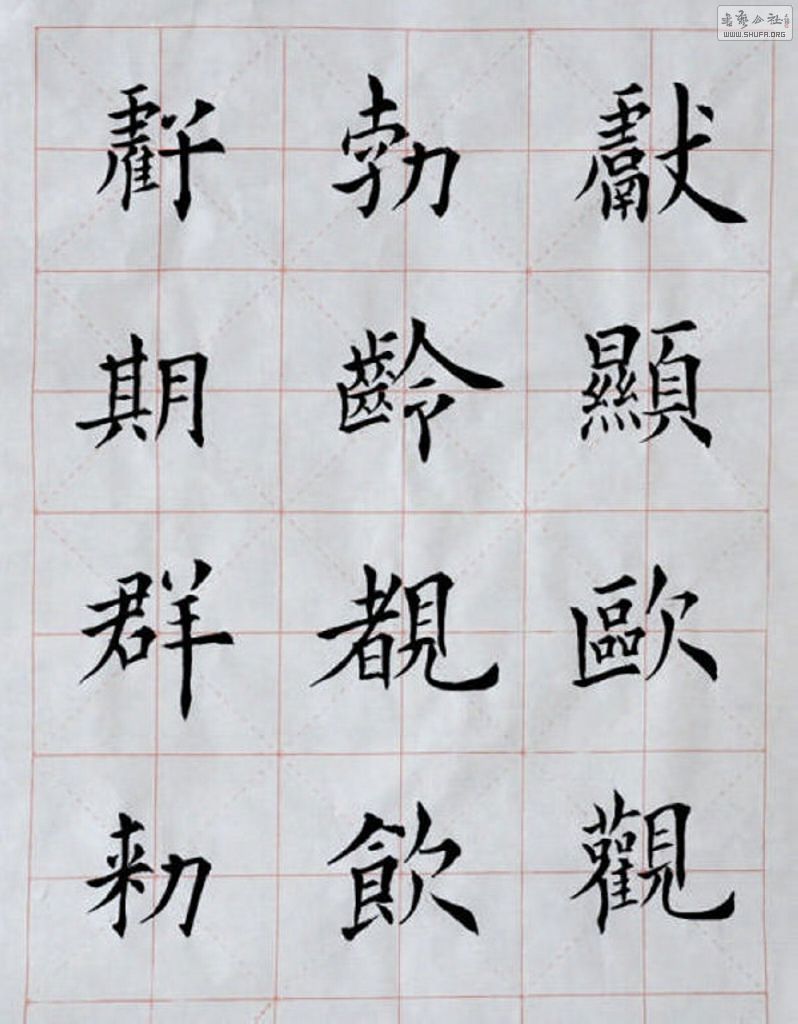 獻顯歐觀
勃齡覩飲
虧期群勑
書藝公社
WWW.SHUFA.ORG